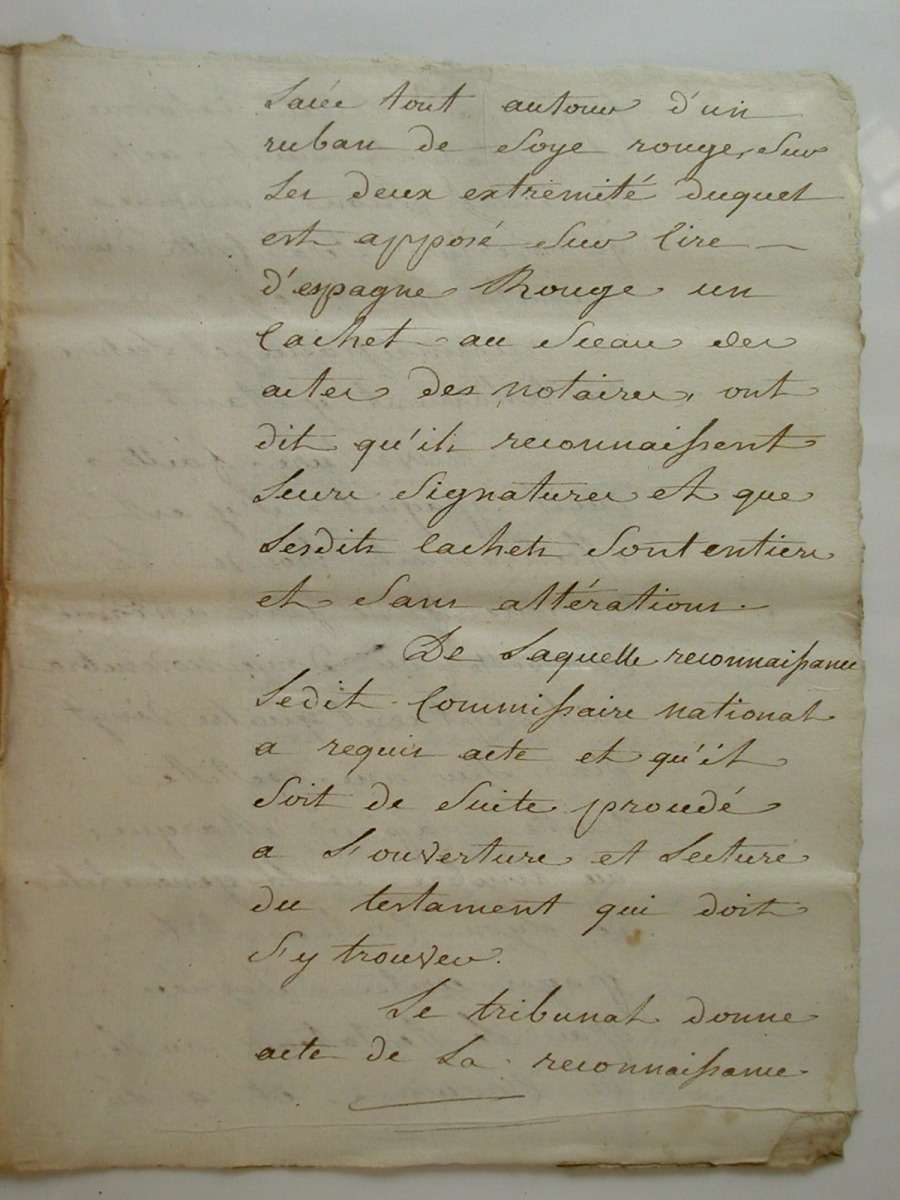 lacée tout autour d'un
ruban de Soye rouge, Sur
les deux extrémité duquel
est apposé Sur Cire
d'espagne Rouge un
Cachet au Sceau des
actes des notaires, ont
dit qu'ils reconnaissent
leurs Signatures et que
lesdits Cachets Sont entiers
et Sans altérations.
De laquelle reconnaissance
ledit Commissaire national
a requis acte et qu'il
Soit de Suite procédé
a l'ouverture et lecture
du testament qui doit
S'y trouver.
Le tribunal donne
acte de la reconnaissance